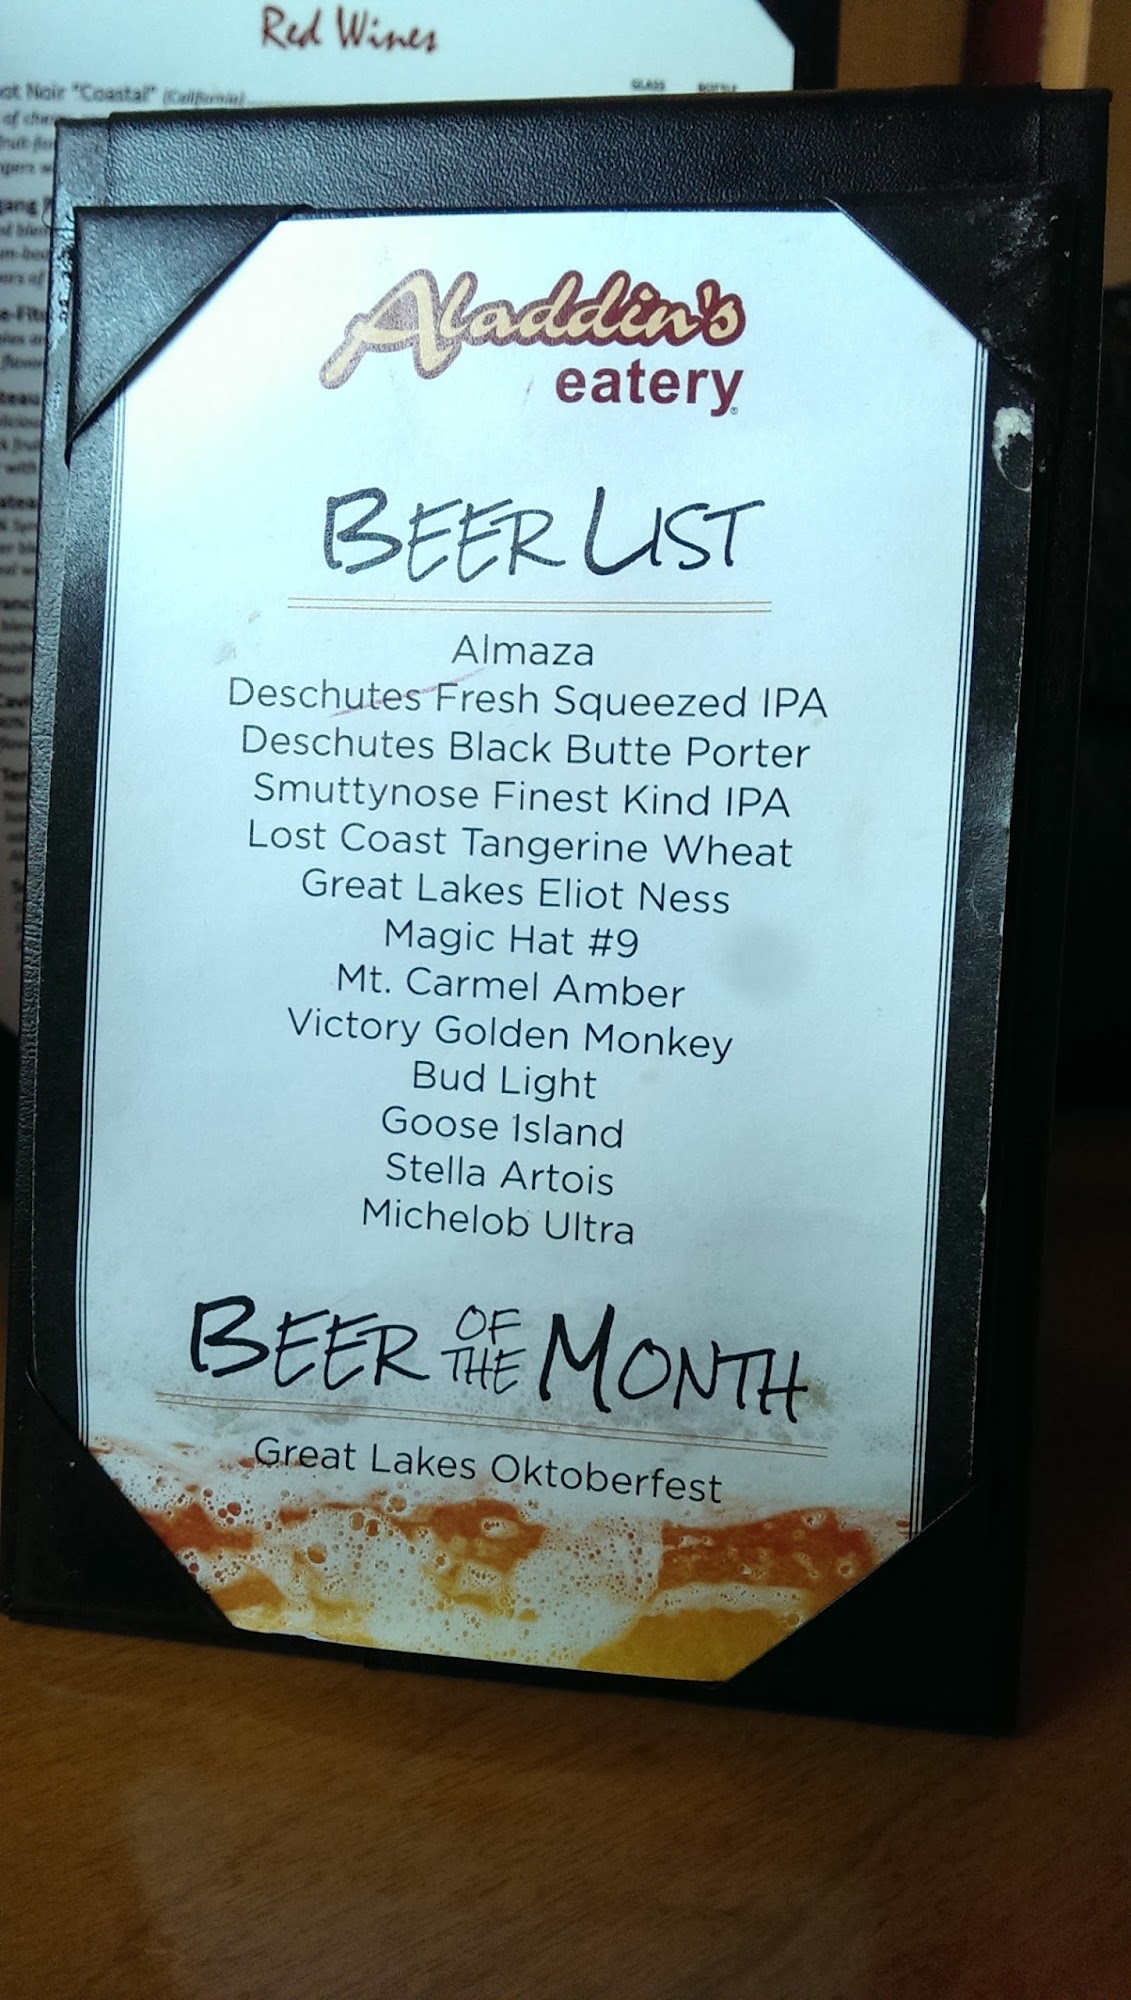 Red Wines
Noir "Coastal" (California)
GLASS BOTTLE
Aladdin's
eatery
BEER LIST
Almaza
Deschutes Fresh Squeezed IPA
Deschutes Black Butte Porter
Smuttynose Finest Kind IPA
Lost Coast Tangerine Wheat
Great Lakes Eliot Ness
Magic Hat #9
Mt. Carmel Amber
Victory Golden Monkey
Bud Light
Goose Island
Stella Artois
Michelob Ultra
BEER OF THE MONTH
Great Lakes Oktoberfest